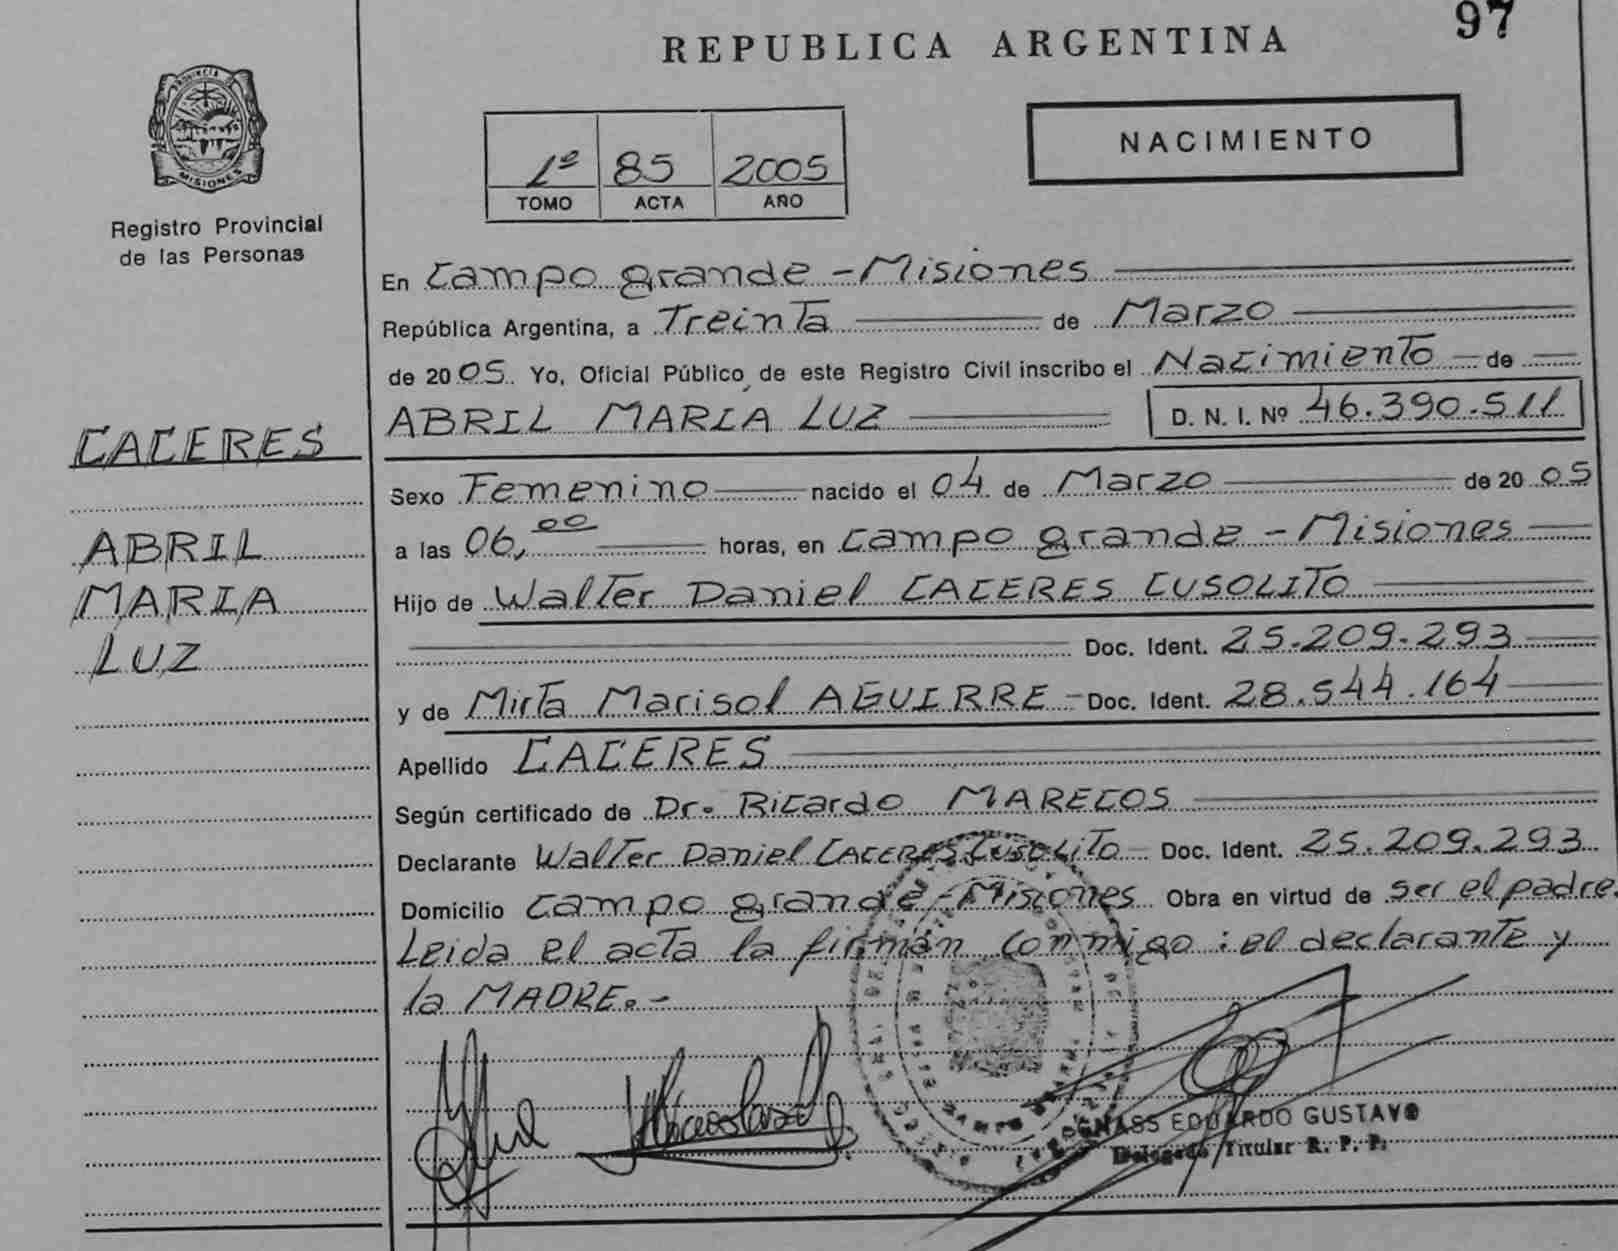 97
REPUBLICA ARGENTINA
NACIMIENTO
1º 85 2005
TOMO ACTA AÑO
PROVINCIA DE
MISIONES
Registro Provincial
de las Personas
CACERES
ABRIL
MARIA
LUZ
En Campo grande - Misiones
República Argentina, a Treinta de Marzo
de 2005. Yo, Oficial Público de este Registro Civil inscribo el Nacimiento de
ABRIL MARIA LUZ D. N. I. Nº 46.390.511
Sexo Femenino nacido el 04 de Marzo de 2005
a las 06,00 horas, en Campo grande - Misiones
Hijo de Walter Daniel CACERES CUSOLITO
Doc. Ident. 25.209.293
y de Mirta Marisol AGUIRRE - Doc. Ident. 28.544.164
Apellido CACERES
Según certificado de Dr. Ricardo MARECOS
Declarante Walter Daniel CACERES CUSOLITO Doc. Ident. 25.209.293
Domicilio Campo grande - Misiones Obra en virtud de ser el padre.
Leida el acta la firman conmigo: el declarante y
la MADRE.-
EDUARDO GUSTAVO
Delegado Titular R. P. P.